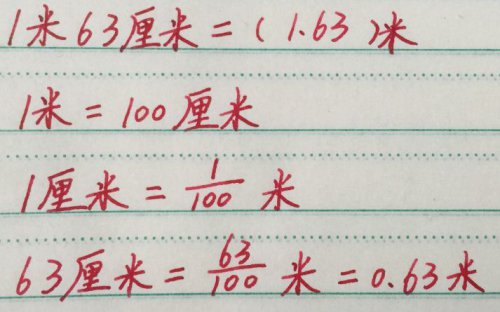 1米63厘米=(1.63)米
1米=100厘米
1厘米=1/100米
63厘米=63/100米=0.63米